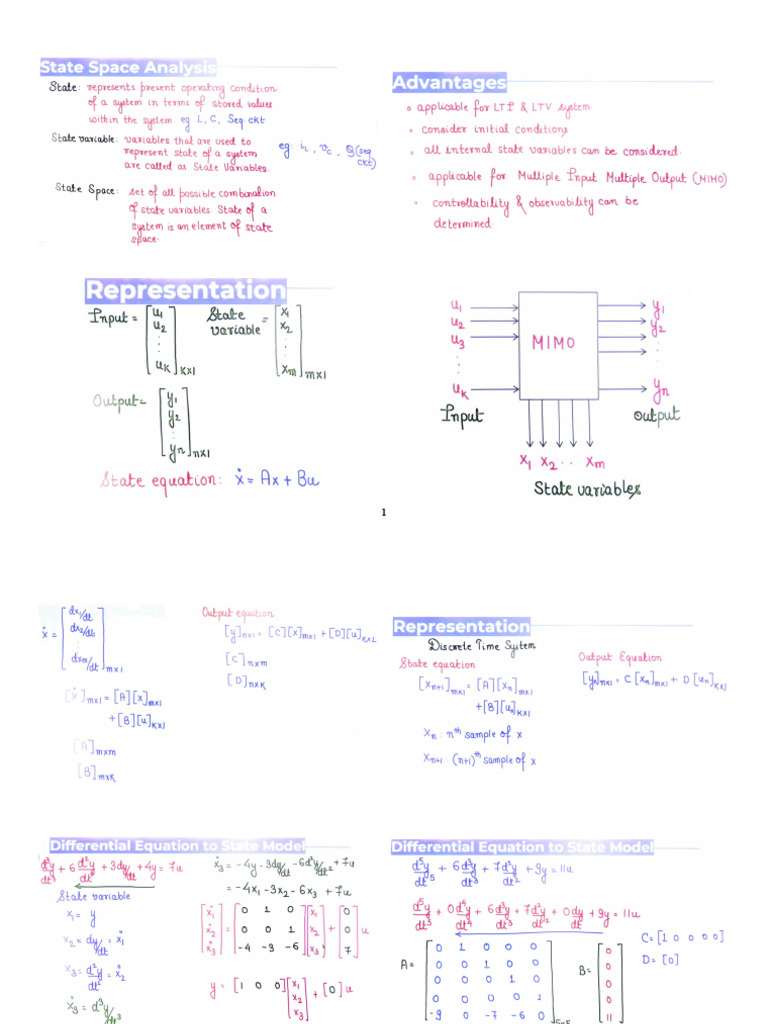 State Space Analysis
State: represents present operating condition
of a system in terms of stored values
within the system eg L, C, Seq ckt
State variable: variables that are used to
represent state of a system
are called as State Variables.
eg: i_L, v_C, Q(seq
ckt)
State Space: set of all possible combination
of state variables. State of a
system is an element of state
space.
Advantages
applicable for LTI & LTV system
consider initial conditions
all internal state variables can be considered.
applicable for Multiple Input Multiple Output (MIMO)
controllability & observability can be
determined.
Representation
Input = [u1 u2 : uk] kx1
State variable = [x1 x2 : xm] mx1
Output = [y1 y2 : yn] nx1
State equation: ẋ = Ax + Bu
u1
u2
u3
:
uk
Input
MIMO
y1
y2
:
yn
output
x1 x2 .. xm
State variables
1
ẋ = [dx1/dt dx2/dt : dxm/dt] mx1
[ẋ]mx1 = [A][x]mx1
+[B][u]kx1
[A]mxm
[B]mxk
Output equation
[y]nx1 = [C][x]mx1 + [D][u]kx1
[C]nxm
[D]nxk
Representation
Discrete Time System
State equation
[xn+1]mx1 = [A][xn]mx1
+[B][un]kx1
xn : nth sample of x
xn+1 : (n+1)th sample of x
Output Equation
[yn]nx1 = C[xn]mx1 + D[un]kx1
Differential Equation to State Model
d³y/dt³ + 6 d²y/dt² + 3dy/dt + 4y = 7u
State variable
x1 = y
x2 = dy/dt = ẋ1
x3 = d²y/dt² = ẋ2
ẋ3 = d³y
ẋ3 = -4y -3dy/dt -6d²y/dt² +7u
= -4x1 -3x2 -6x3 +7u
[ẋ1 ẋ2 ẋ3] = [0 1 0
0 0 1
-4 -3 -6] [x1 x2 x3] + [0 0 7] u
y = [1 0 0] [x1 x2 x3] + [0] u
Differential Equation to State Model
d⁵y/dt⁵ + 6d³y/dt³ + 7d²y/dt² + 9y = 11u
d⁵y/dt⁵ + 0d⁴y/dt⁴ + 6d³y/dt³ + 7d²y/dt² + 0dy/dt + 9y = 11u
A = [0 1 0 0 0
0 0 1 0 0
0 0 0 1 0
0 0 0 0 1
-9 0 -7 -6 0] 5x5
B = [0 0 0 0 11]
C = [1 0 0 0 0]
D = [0]